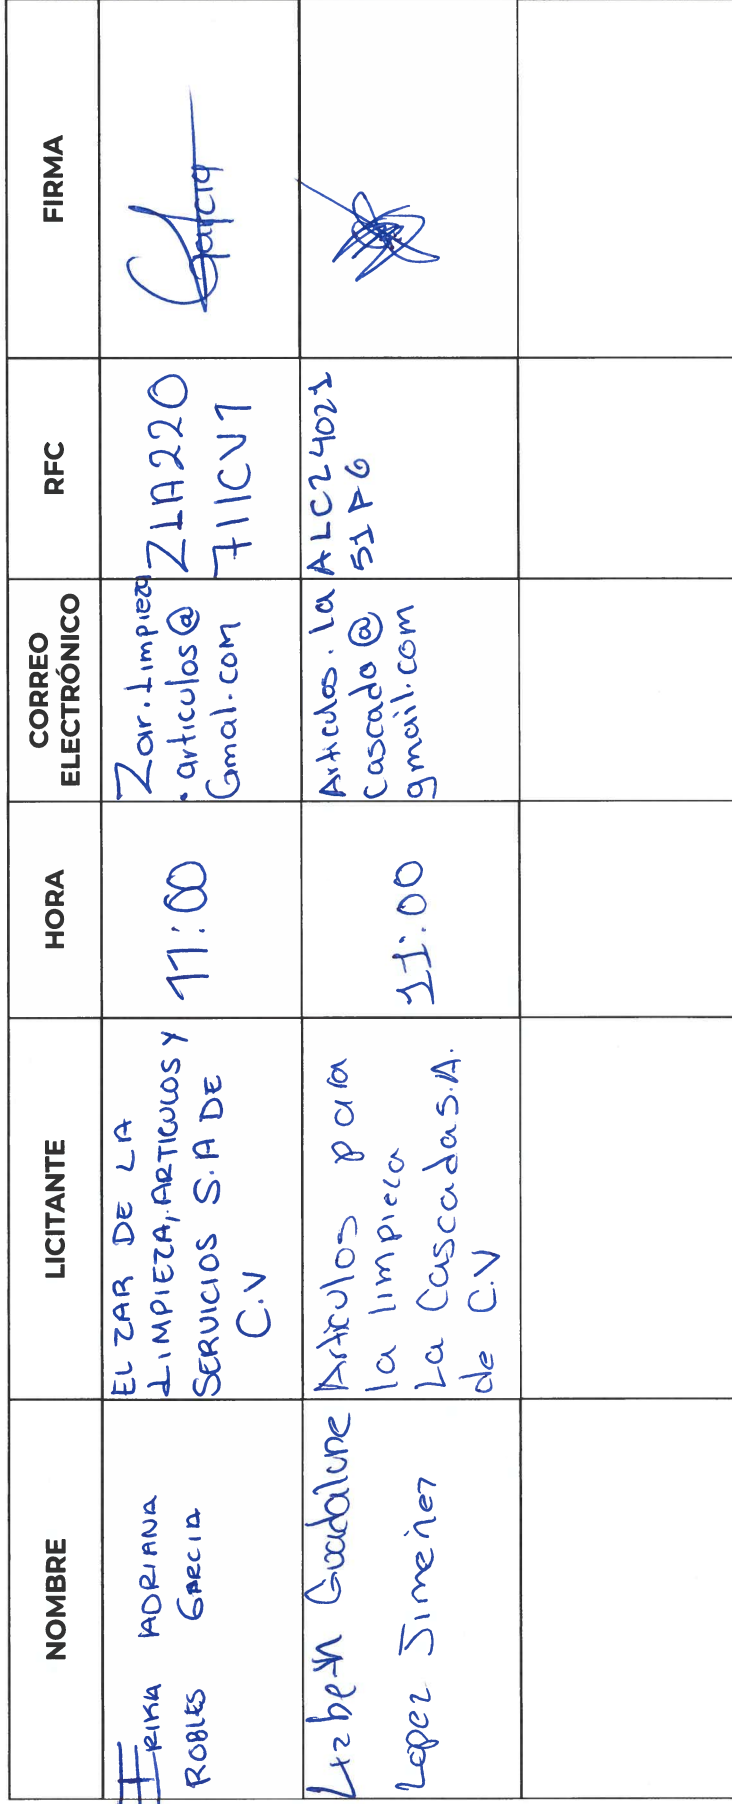 NOMBRE
LICITANTE
HORA
CORREO
ELECTRÓNICO
RFC
FIRMA
ERIKA ADRIANA
ROBLES GARCIA
EL ZAR DE LA
LIMPIEZA, ARTICULOS Y
SERVICIOS S.A DE
C.V
11:00
Zar.Limpieza
.articulos@
Gmal.com
ZLA220
711CV1
Garcia
Lizbeth Guadalupe
Lopez Jimenez
Articulos para
la limpieza
La Cascada S.A.
de C.V
11:00
Articulos.la
Cascada@
gmail.com
ALC24021
51P6